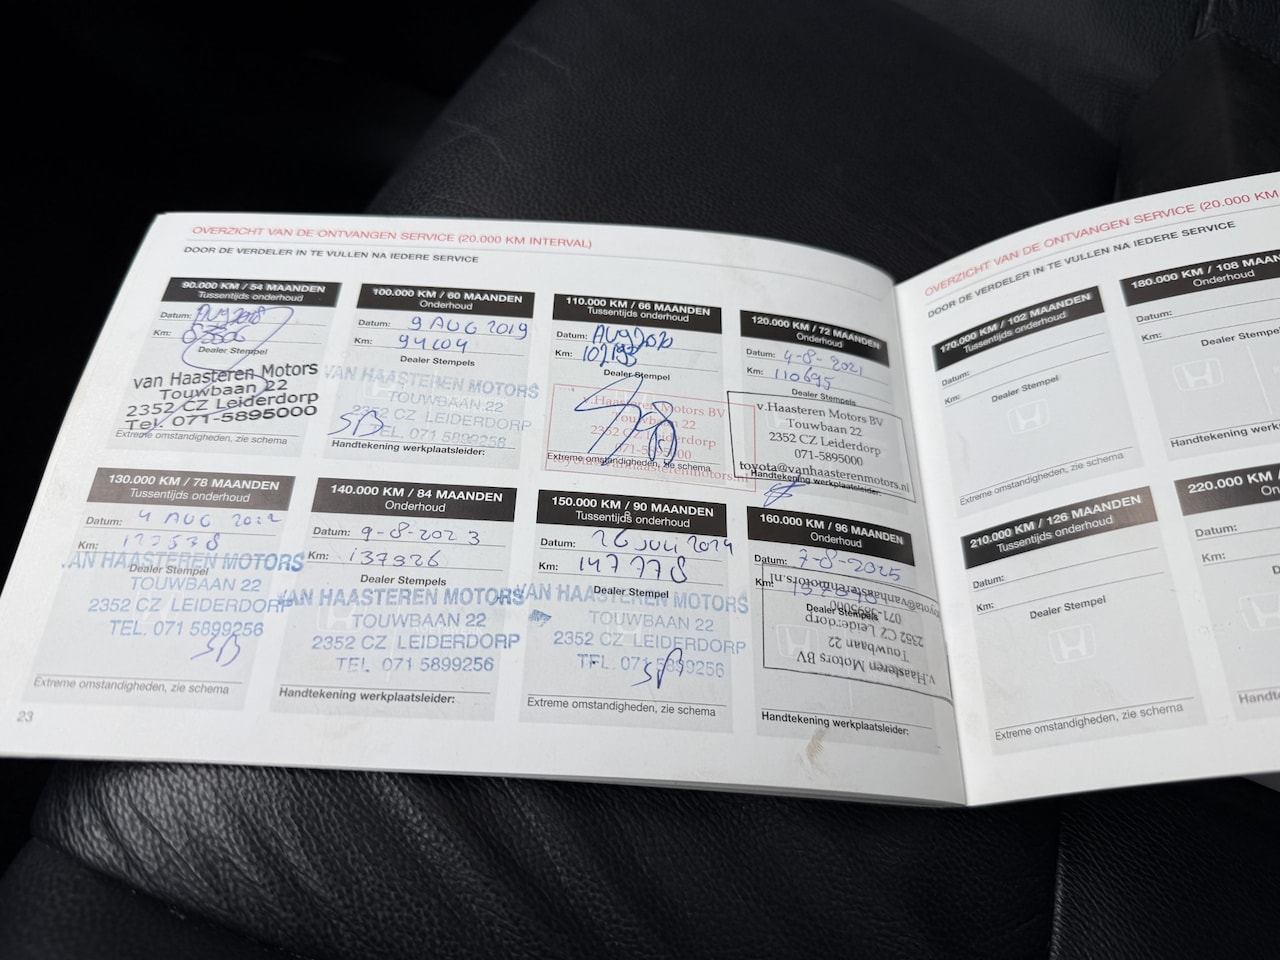 OVERZICHT VAN DE ONTVANGEN SERVICE (20.000 KM INTERVAL)
DOOR DE VERDELER IN TE VULLEN NA IEDERE SERVICE
90.000 KM / 54 MAANDEN
Tussentijds onderhoud
Datum: AUG 2018
Km:
Dealer Stempel
van Haasteren Motors
Touwbaan 22
2352 CZ Leiderdorp
Tel. 071-5895000
Extreme omstandigheden, zie schema
100.000 KM / 60 MAANDEN
Onderhoud
Datum: 9 AUG 2019
Km: 94404
Dealer Stempels
VAN HAASTEREN MOTORS
TOUWBAAN 22
2352 CZ LEIDERDORP
TEL. 071 5899256
Handtekening werkplaatsleider:
110.000 KM / 66 MAANDEN
Tussentijds onderhoud
Datum: AUG 2020
Km:
Dealer Stempel
v.Haasteren Motors BV
Touwbaan 22
2352 CZ Leiderdorp
071-5895000
toyota@vanhaasterenmotors.nl
Extreme omstandigheden, zie schema
120.000 KM / 72 MAANDEN
Onderhoud
Datum: 4-8-2021
Km: 110695
Dealer Stempels
v.Haasteren Motors BV
Touwbaan 22
2352 CZ Leiderdorp
071-5895000
toyota@vanhaasterenmotors.nl
Handtekening werkplaatsleider:
130.000 KM / 78 MAANDEN
Tussentijds onderhoud
Datum: 4 AUG 2022
Km: 127538
Dealer Stempel
VAN HAASTEREN MOTORS
TOUWBAAN 22
2352 CZ LEIDERDORP
TEL. 071 5899256
Extreme omstandigheden, zie schema
140.000 KM / 84 MAANDEN
Onderhoud
Datum: 9-8-2023
Km: 137326
Dealer Stempels
VAN HAASTEREN MOTORS
TOUWBAAN 22
2352 CZ LEIDERDORP
TEL. 071 5899256
Handtekening werkplaatsleider:
150.000 KM / 90 MAANDEN
Tussentijds onderhoud
Datum: 26 JULI 2024
Km: 147778
Dealer Stempel
VAN HAASTEREN MOTORS
TOUWBAAN 22
2352 CZ LEIDERDORP
TEL. 071 5899256
Extreme omstandigheden, zie schema
160.000 KM / 96 MAANDEN
Onderhoud
Datum: 7-8-2025
Km:
Dealer Stempels
v.Haasteren Motors BV
Touwbaan 22
2352 CZ Leiderdorp
071-5895000
toyota@vanhaasterenmotors.nl
Handtekening werkplaatsleider:
23
OVERZICHT VAN DE ONTVANGEN SERVICE (20.000 KM
DOOR DE VERDELER IN TE VULLEN NA IEDERE SERVICE
170.000 KM / 102 MAANDEN
Tussentijds onderhoud
Datum:
Km:
Dealer Stempel
Extreme omstandigheden, zie schema
180.000 KM / 108
Onderhoud
Datum:
Km:
Handtekening werkpla
210.000 KM / 126 MAANDEN
Tussentijds onderhoud
Datum:
Km:
Dealer Stempel
Extreme omstandigheden, zie schema
220.000 KM /
Datum:
Km:
Handtekening